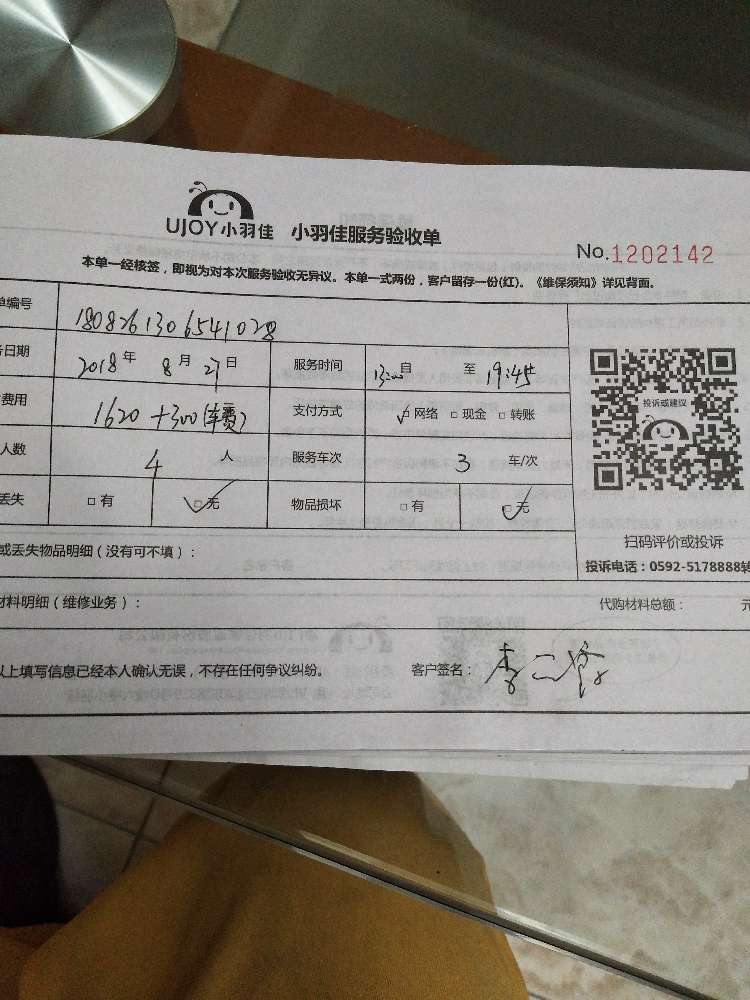 UJOY小羽佳 小羽佳服务验收单
No.1202142
本单一经核签，即视为对本次服务验收无异议。本单一式两份，客户留存一份(红)。《维保须知》详见背面。
单编号 1808261306541028
务日期 2018年 8月 27日 服务时间 13:00自 至 19:45
费用 1620+300(车费) 支付方式 网络 现金 转账
人数 4 人 服务车次 3 车/次
丢失 有 无 物品损坏 有 无
投诉或建议
扫码评价或投诉
投诉电话：0592-5178888转
或丢失物品明细（没有可不填）：
材料明细（维修业务）： 代购材料总额： 元
以上填写信息已经本人确认无误，不存在任何争议纠纷。 客户签名：